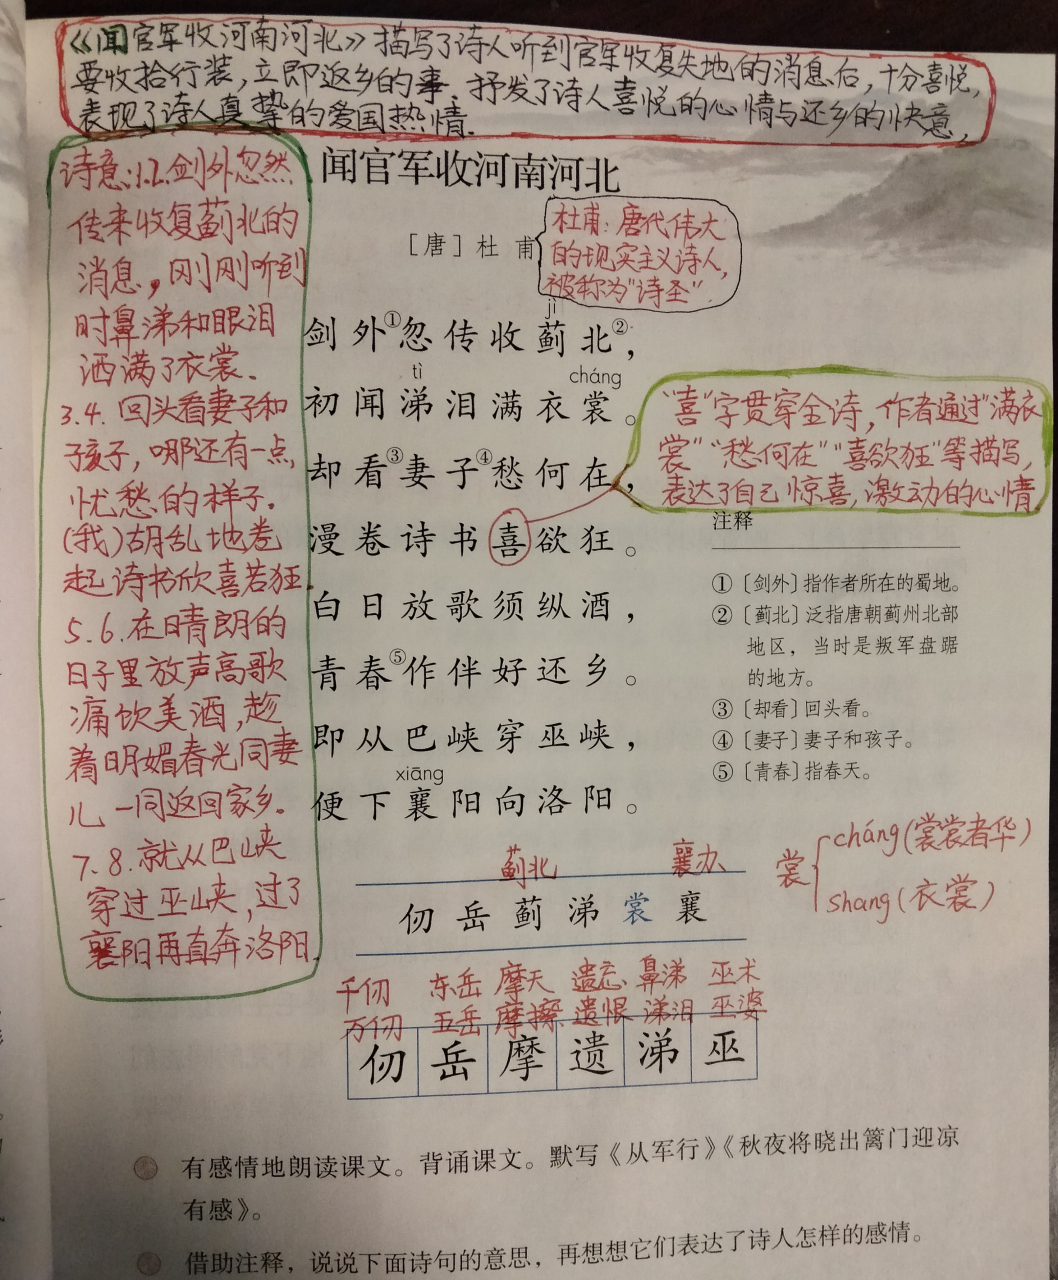 《闻官军收河南河北》描写了诗人听到官军收复失地的消息后，十分喜悦，
要收拾行装，立即返乡的事．抒发了诗人喜悦的心情与还乡的快意，
表现了诗人真挚的爱国热情．
诗意:1.2.剑外忽然
传来收复蓟北的
消息，刚刚听到
时鼻涕和眼泪
洒满了衣裳．
3.4.回头看妻子和
孩子，哪还有一点，
忧愁的样子．
(我)胡乱地卷
起诗书欣喜若狂．
5.6.在晴朗的
日子里放声高歌
痛饮美酒，趁
着明媚春光同妻
儿一同返回家乡．
7.8.就从巴峡
穿过巫峡，过了
襄阳再直奔洛阳．
闻官军收河南河北
［唐］杜 甫
杜甫：唐代伟大
的现实主义诗人，
被称为"诗圣"．
jì
剑外①忽传收蓟北②，
tì cháng
初闻涕泪满衣裳。
却看③妻子④愁何在，
漫卷诗书喜欲狂。
白日放歌须纵酒，
青春⑤作伴好还乡。
即从巴峡穿巫峡，
xiāng
便下襄阳向洛阳。
"喜"字贯穿全诗，作者通过"满衣
裳""愁何在""喜欲狂"等描写，
表达了自己惊喜，激动的心情
注释
①〔剑外〕指作者所在的蜀地。
②〔蓟北〕泛指唐朝蓟州北部
地区，当时是叛军盘踞
的地方。
③〔却看〕回头看。
④〔妻子〕妻子和孩子。
⑤〔青春〕指春天。
裳 cháng(裳裳者华)
shang(衣裳)
蓟北 襄办
仞 岳 蓟 涕 裳 襄
千仞 东岳 摩天 遗忘 鼻涕 巫术
万仞 五岳 摩擦 遗恨 涕泪 巫婆
仞 岳 摩 遗 涕 巫
有感情地朗读课文。背诵课文。默写《从军行》《秋夜将晓出篱门迎凉
有感》。
借助注释，说说下面诗句的意思，再想想它们表达了诗人怎样的感情。